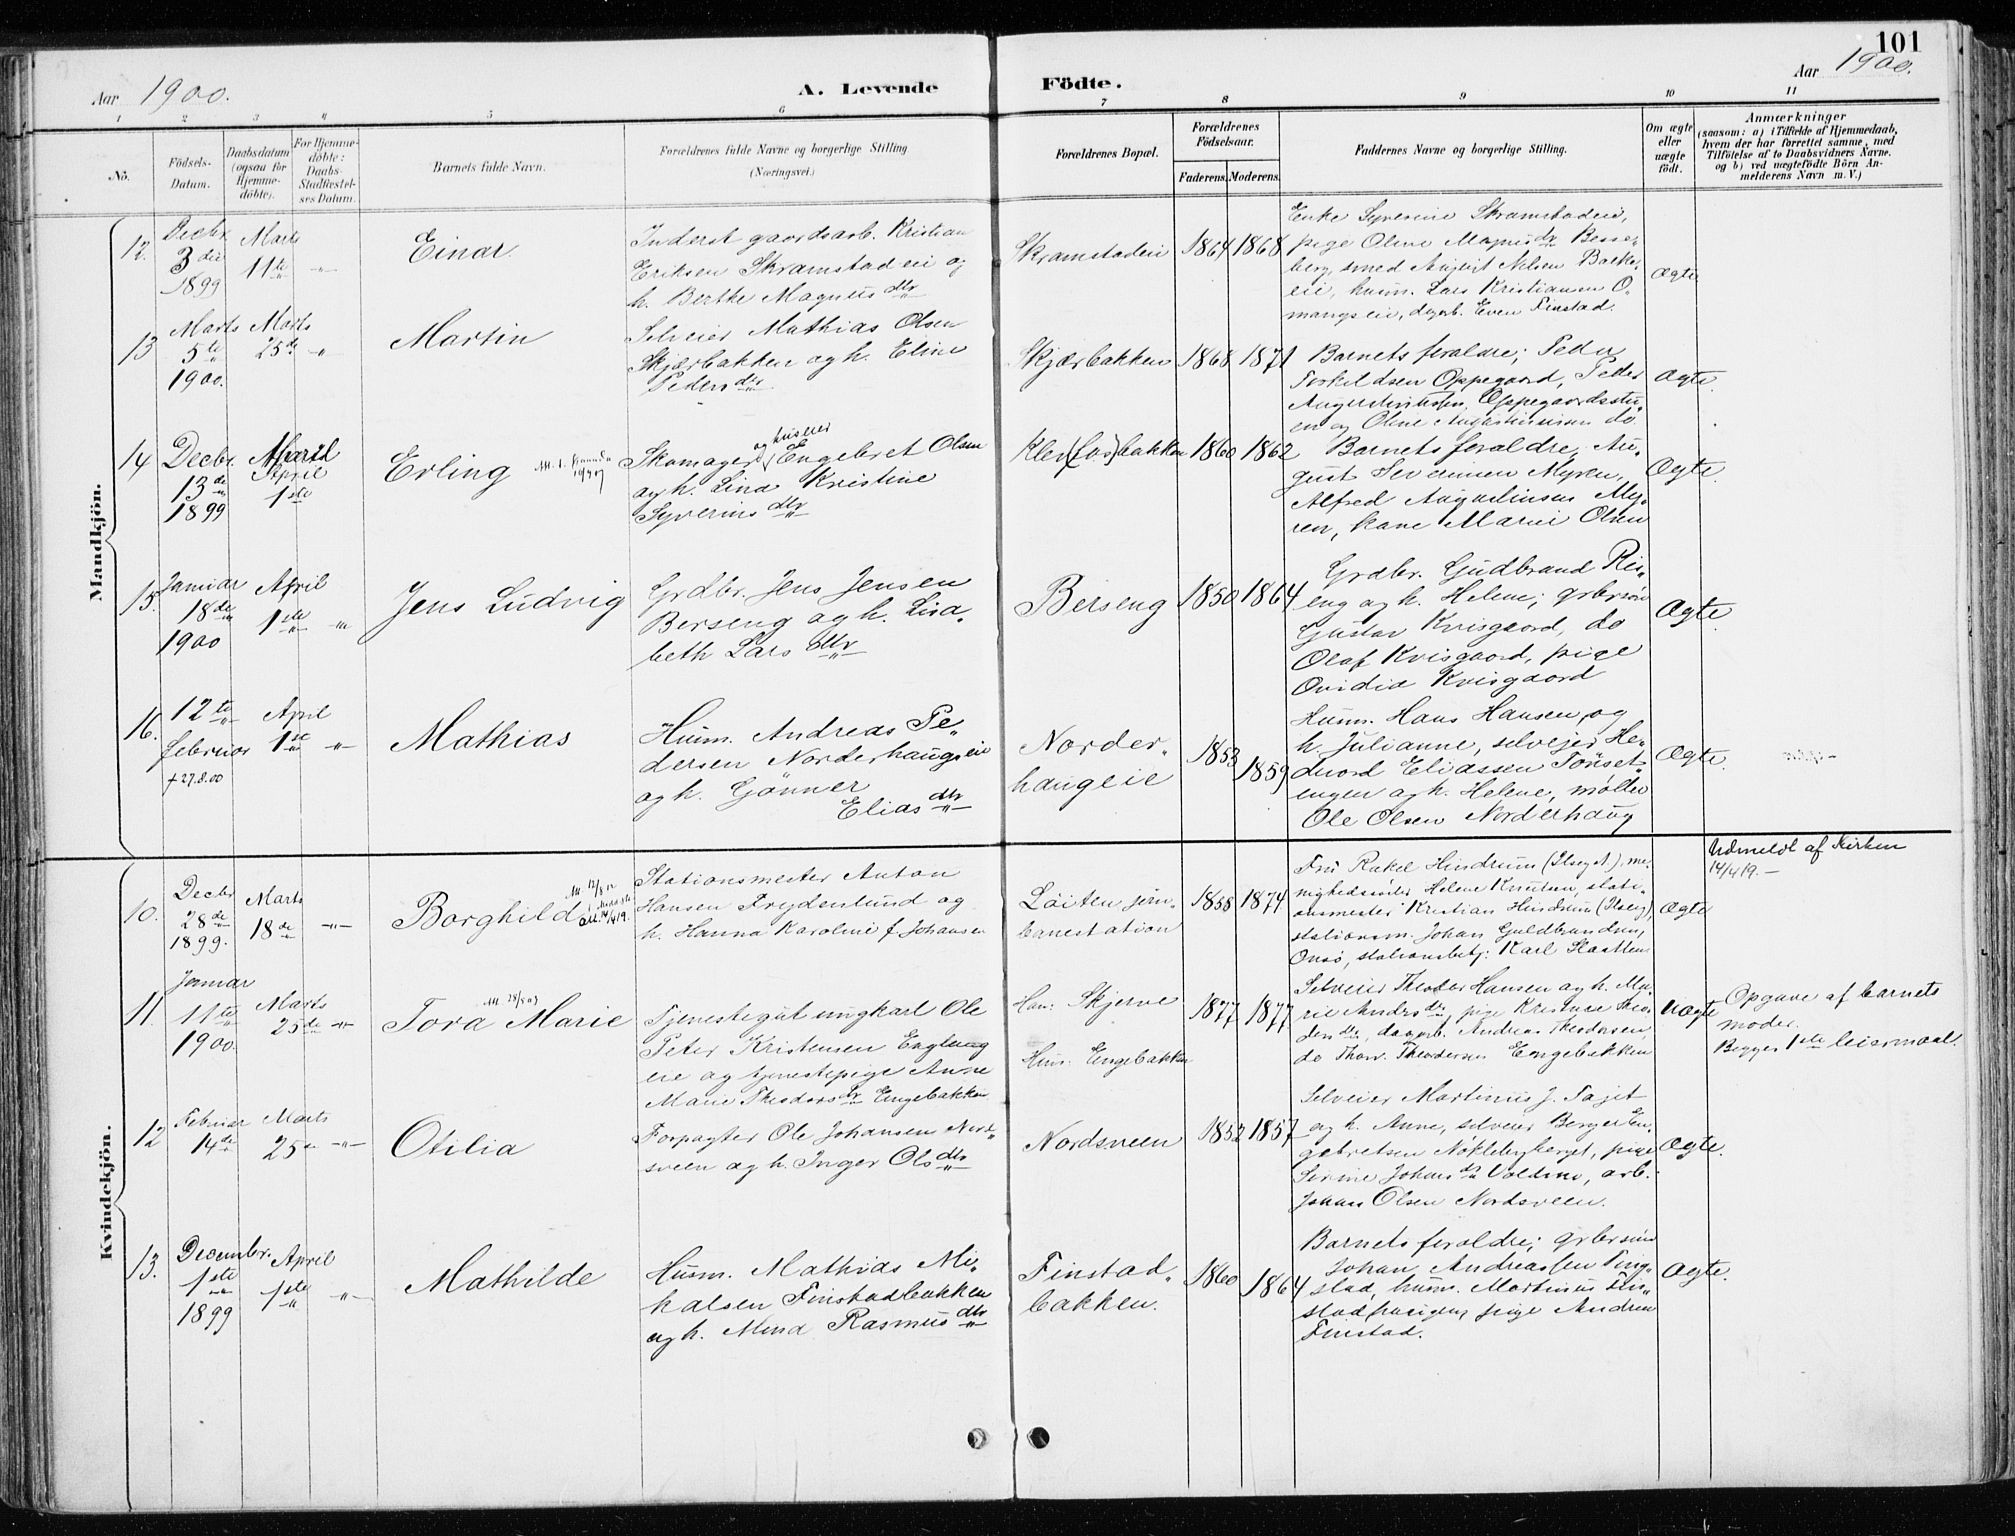 101
Aar 1900.
A. Levende Födte.
Aar 1900.
1 2 3 4 5 6 7 8 9 10 11
No.
Födsels-Datum.
Daabsdatum (ogsaa for Hjemmedöbte).
For Hjemmedöbte: Daabs-Stadfæstelses Datum.
Barnets fulde Navn.
Forældrenes fulde Navne og borgerlige Stilling
(Næringsvei.)
Forældrenes Bopæl.
Forældrenes Födselsaar.
Faderens. Moderens.
Faddernes Navne og borgerlige Stilling.
Om ægte eller uægte födt.
Anmærkninger
(saasom: a) i Tilfælde af Hjemmedaab,
hvem der har forrettet samme, med
Tilföielse af to Daabsvidners Navne.
og b) ved uægtefödte Börn Anmelderens Navn m. V.)
Mandkjön.
12.
Decbr 3die 1899
Marts 11te
"
Einar
Inderst gaardsarb. Kristian
Eriksen Skramstadeie og
h. Berthe Magnus dtr
Skramstadeie
1864 1868
Enke Syverine Skramstadeie,
pige Oline Magnus dr Besse-
berg, smed August Nilsen Bakke-
eie, husm. Lars Kristiansen O-
mangseie, dagarb. Even Finstad.
Ægte
13
Marts 5te 1900.
Marts 25de
"
Martin
Selveier Mathias Olsen
Skjærbakken og h. Eline
Peders dtr
Skjærbakken
1868 1871
Barnets foraldre; Peder
Torkildsen Oppegaard, Peder
Augustinusen Oppegaardsstu-
en og Oline Augustinusen do
Ægte.
14
Decbr. 13de 1899
April 1ste
Erling
Skomager og huseier Engebret Olsen
og h. Lina Kristine
Syverins dtr
Klev(fos)bakken
1860 1862
Barnets foraldre, Au-
gust Severinsen Myren,
Alfred Augustinsen My-
ren, kone Marie Olsen
Ægte.
15.
Januar 18de 1900
April 1ste
"
Jens Ludvig
Grdbr. Jens Jensen
Berseng og h. Lisa-
beth Lars dtr
Berseng
1850 1864
Grdbr. Gudbrand Ris-
eng og h. Helene; grbrsøn
Gustav Kvisgaard, do
Olaf Kvisgaard, pige
Ovidia Kvisgaard
Ægte.
16.
12te februar
+ 27.8.00
April 1ste
"
Mathias
Husm. Andreas Pe-
dersen Norderhaugseie
og h. Gønner
Elias dtr
Norder-
haugeie
1853 1859
Husm. Hans Hansen og
h. Julianne, selvejer He-
dvard Eliassen Tønset-
engen og h. Helene, møller
Ole Olsen Norderhaug
Ægte.
Kvindekjön.
10.
Decbr 28de 1899.
Marts 18de
"
Borghild
Stationsmester Anton
Hansen Frydenlund og
h. Hanna Karoline f Johansen
Løiten jern-
banestation
1858 1874
Fru Rakel Hindrum (Ilseng st.), me-
nighedssøster Helene Knutsen, stati-
onsmester Kristian Hindrum (Ilseng),
stationsm. Johan Guldbrandsen,
Onsø, stationsbetj. Karl Slaatten
Ægte
Udmeldt af Kirken
14/4 19. —
11.
Januar 11te 1900.
Marts 25de
"
Tora Marie
Tjenestegut ungkarl Ole
Peter Kristensen Englaug
eie og tjenestepige Anne
Marie Theodors dr Engebakken
Han: Skjerve
Hun: Engebakken
1877 1877
Selveier Theodor Hansen og h. Ma-
rie Anders dtr, pige Kristine Theo-
dors dtr, dagarb. Andreas Theodorsen,
do Thorv. Theodorsen Engebakken
Uægte
Opgave af barnets
moder.
Begges 1ste leiermaal.
12
Februar 14de
Marts 25de
"
Otilia
Forpagter Ole Johansen Nord-
sveen og h. Inger Ols dtr
Nordsveen
1852 1857
Selveier Martinus J. Tajet
og h. Anne, selveier Berger En-
gebretsen Nøklebyberget, pige
Serine Johans dr Voldmo, arb.
Johan Olsen Nordsveen.
Ægte.
13.
Decembr. 1ste 1899
April 1ste
"
Mathilde
Husm. Mathias Mi-
kalsen Finstadbakken
og h. Mina Rasmus dtr
Finstad-
bakken.
1860 1864
Barnets foraldre; grbrsøn
Johan Andreassen Fing-
stad, husm. Martinus Fin-
stad, pige Andrea
Finstad.
Ægte.